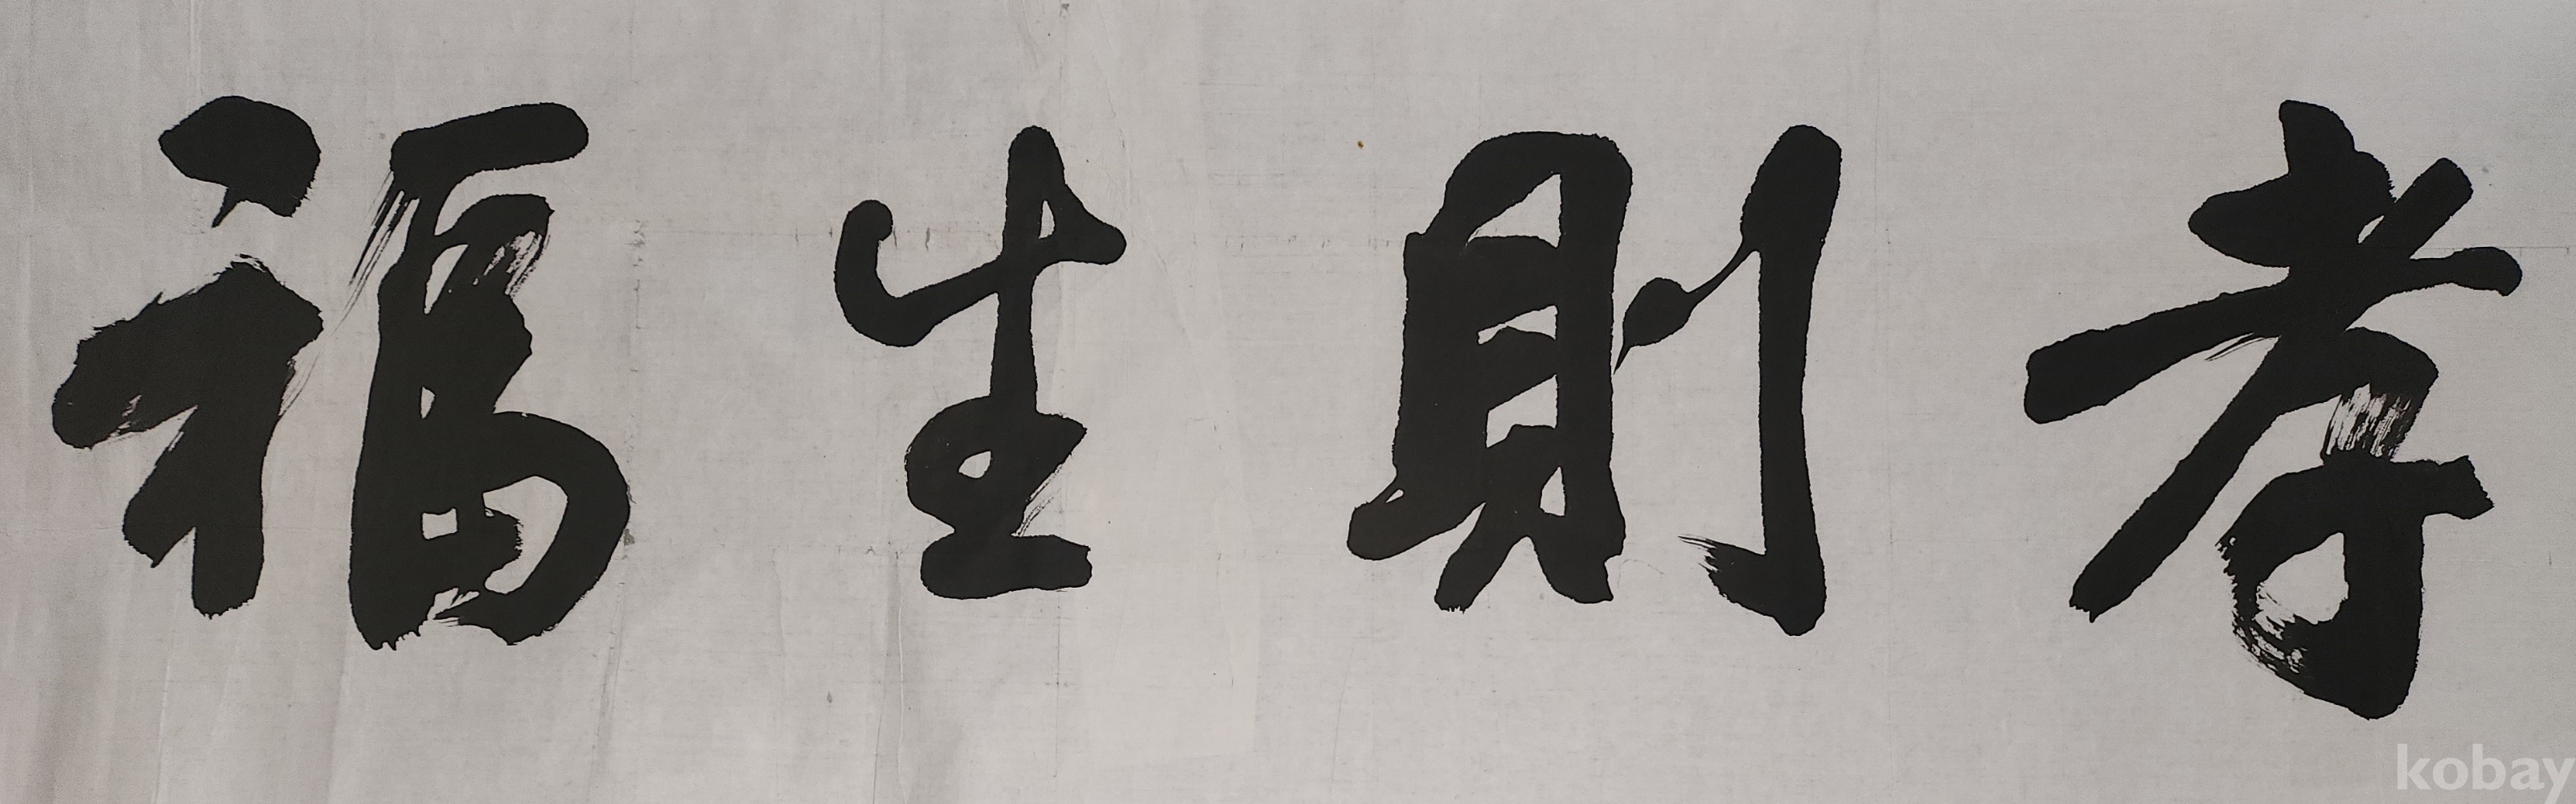 孝則生福
kobay